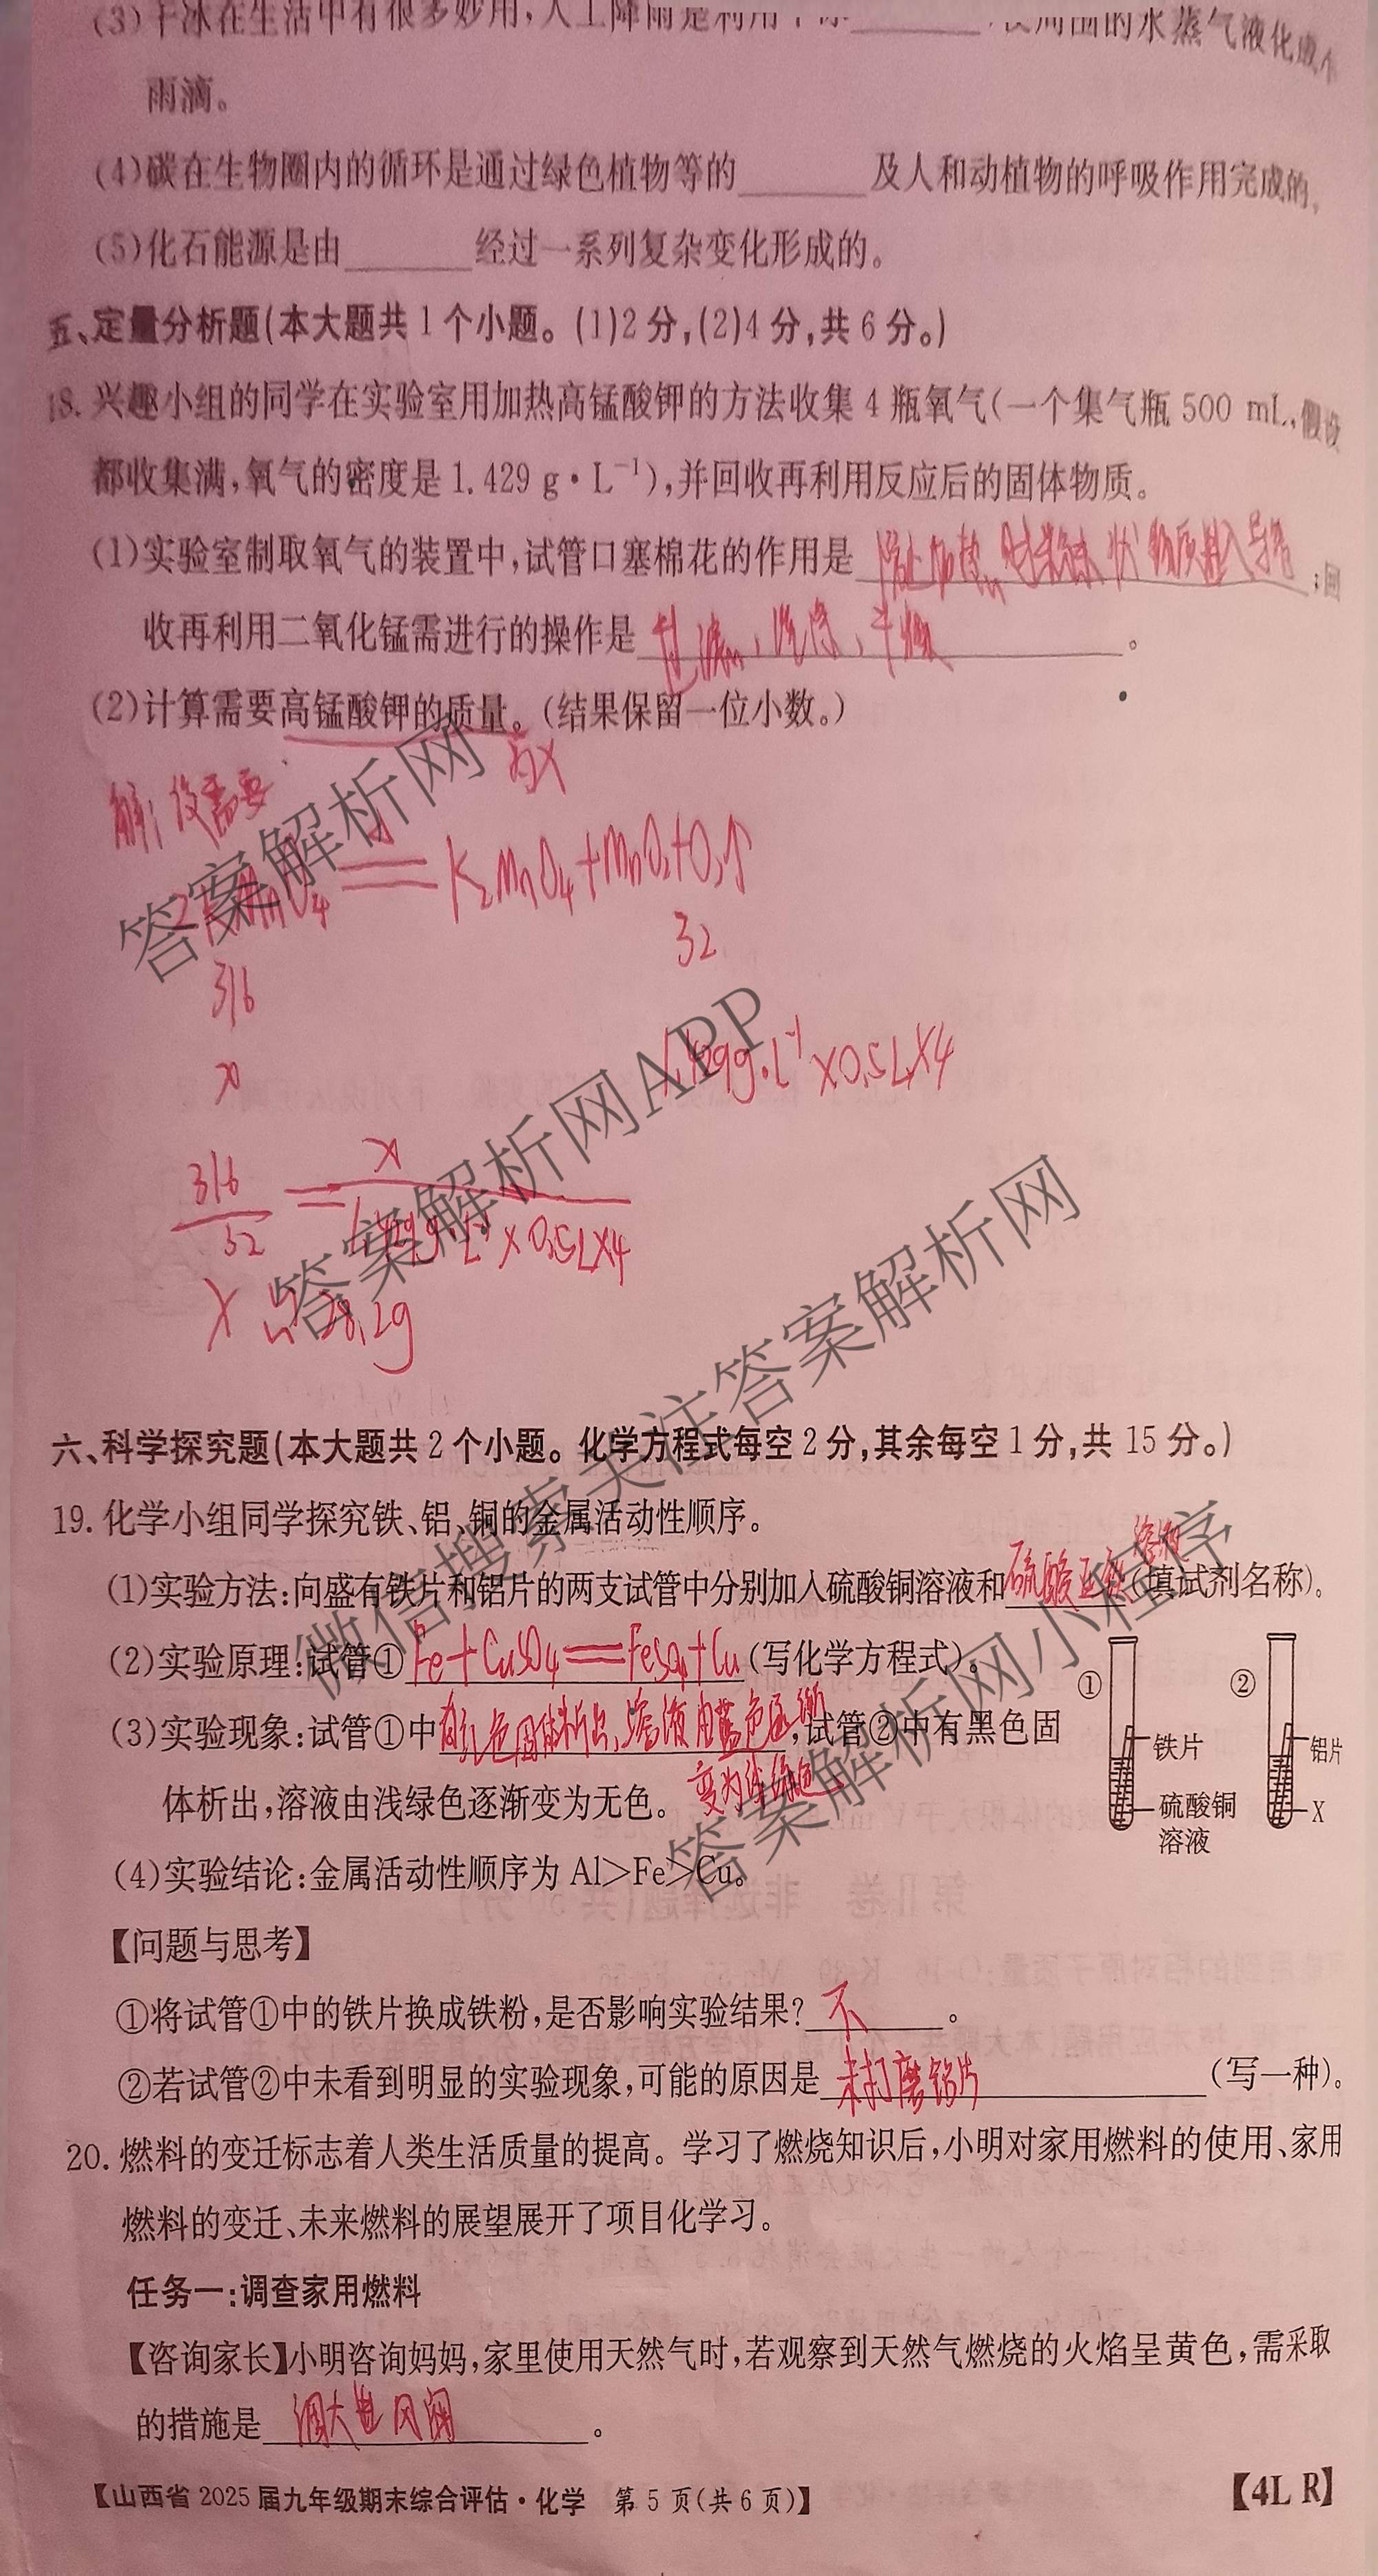 (3)干冰在生活中有很多妙用,人工降雨是利用干冰________,使周围的水蒸气液化成小
雨滴。
(4)碳在生物圈内的循环是通过绿色植物等的________及人和动植物的呼吸作用完成的。
(5)化石能源是由________经过一系列复杂变化形成的。
五、定量分析题(本大题共1个小题。(1)2分,(2)4分,共6分。)
18.兴趣小组的同学在实验室用加热高锰酸钾的方法收集4瓶氧气(一个集气瓶500 mL,假设
都收集满,氧气的密度是1.429 g·L⁻¹),并回收再利用反应后的固体物质。
(1)实验室制取氧气的装置中,试管口塞棉花的作用是 防止加热时粉末状物质进入导管 ;回
收再利用二氧化锰需进行的操作是 过滤、洗涤、干燥 。
(2)计算需要高锰酸钾的质量。(结果保留一位小数。)
解:设需要 为x
2KMnO₄ ═ K₂MnO₄+MnO₂+O₂↑
316 32
x 1.429g·L⁻¹×0.5L×4
316/32 = x/1.429g·L⁻¹×0.5L×4
x ≈ 28.2g
六、科学探究题(本大题共2个小题。化学方程式每空2分,其余每空1分,共15分。)
19.化学小组同学探究铁、铝、铜的金属活动性顺序。
(1)实验方法:向盛有铁片和铝片的两支试管中分别加入硫酸铜溶液和 硫酸亚铁溶液 (填试剂名称)。
(2)实验原理:试管① Fe+CuSO₄═FeSO₄+Cu (写化学方程式)。
(3)实验现象:试管①中 有红色固体析出、溶液由蓝色逐渐变为浅绿色 ,试管②中有黑色固
体析出,溶液由浅绿色逐渐变为无色。
①
铁片
硫酸铜
溶液
②
铝片
X
(4)实验结论:金属活动性顺序为Al>Fe>Cu。
【问题与思考】
①将试管①中的铁片换成铁粉,是否影响实验结果? 不 。
②若试管②中未看到明显的实验现象,可能的原因是 未打磨铝片 (写一种)。
20.燃料的变迁标志着人类生活质量的提高。学习了燃烧知识后,小明对家用燃料的使用、家用
燃料的变迁、未来燃料的展望展开了项目化学习。
任务一:调查家用燃料
【咨询家长】小明咨询妈妈,家里使用天然气时,若观察到天然气燃烧的火焰呈黄色,需采取
的措施是 调大进风阀 。
【山西省2025届九年级期末综合评估·化学 第5页(共6页)】
【4L R】
答案解析网
答案解析网APP
微信搜索关注答案解析网
答案解析网小程序